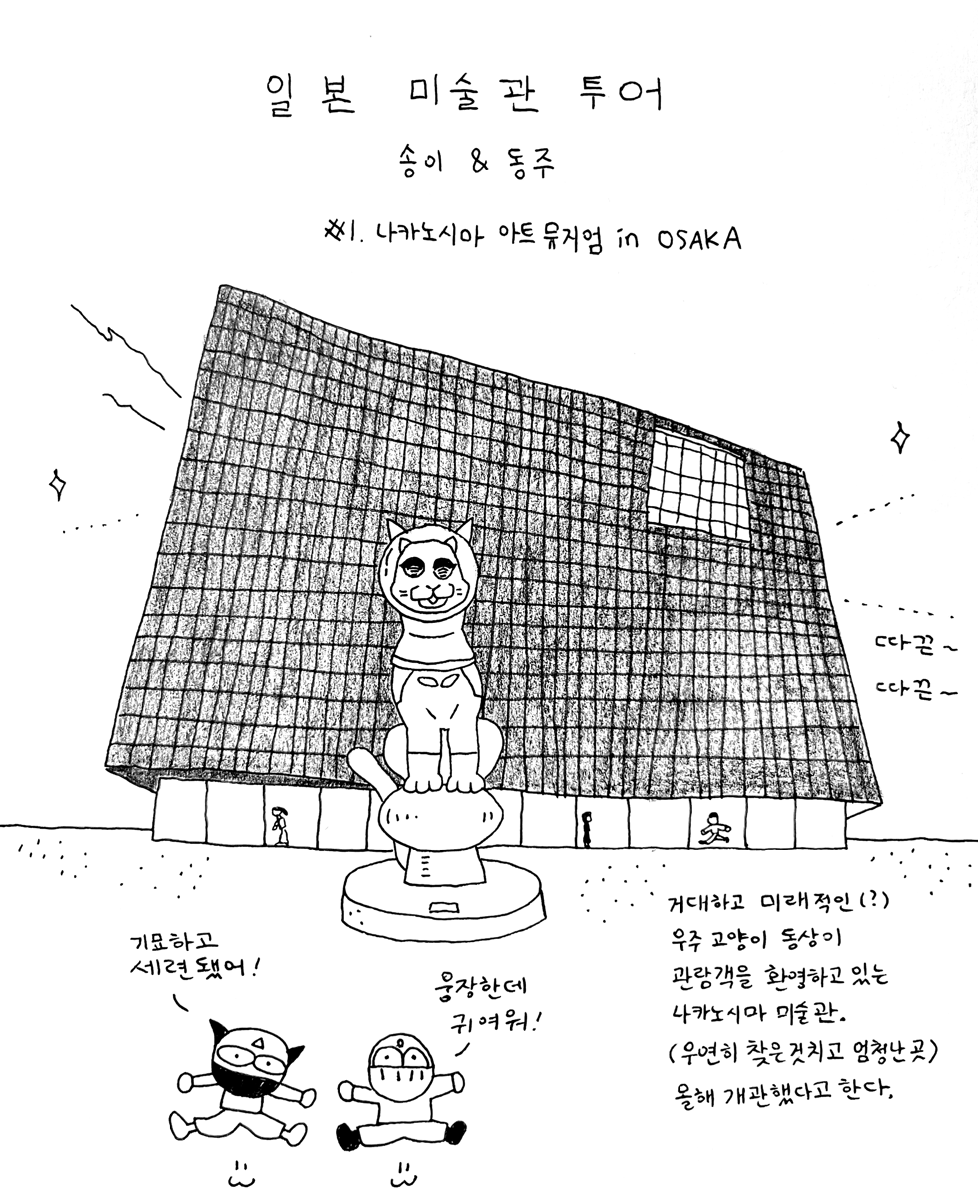 일본 미술관 투어
송이 & 동주
#1. 나카노시마 아트 뮤지엄 in OSAKA
따끈~
따끈~
기묘하고
세련됐어!
웅장한데
귀여워!
거대하고 미래적인(?)
우주 고양이 동상이
관람객을 환영하고 있는
나카노시마 미술관.
(우연히 찾은것치고 엄청난곳)
올해 개관했다고 한다.